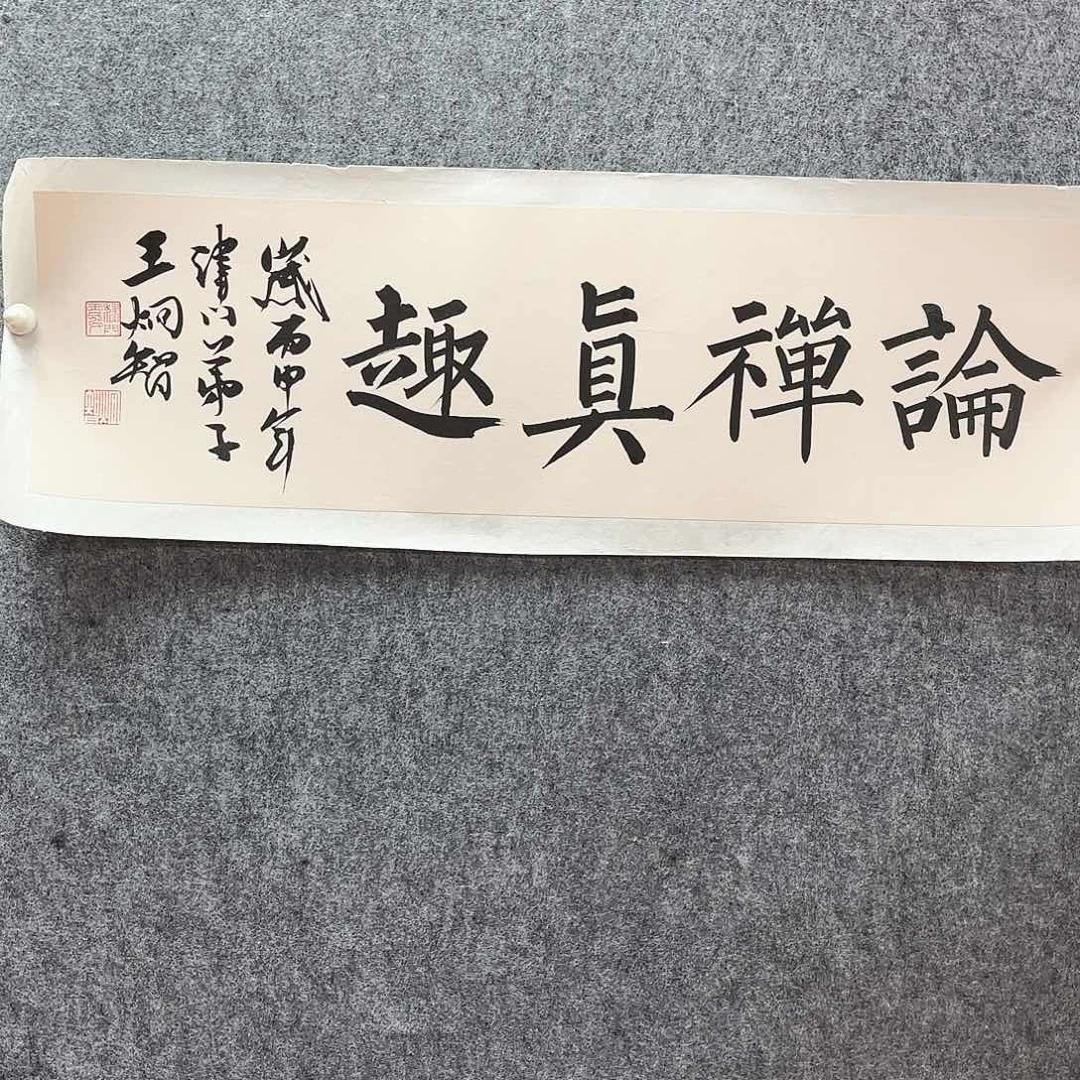 論禪真趣
歲丙申年
津門弟子
王炯智